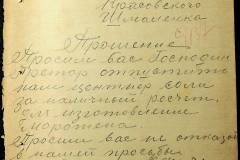 Красовского
Шмаленка
Прошение
Просим вас Господин
Претор отпустить
нам центнер соли
за наличный росчет,
для изготовление
морожена.
Просим вас не отказ
в нашей просьбы